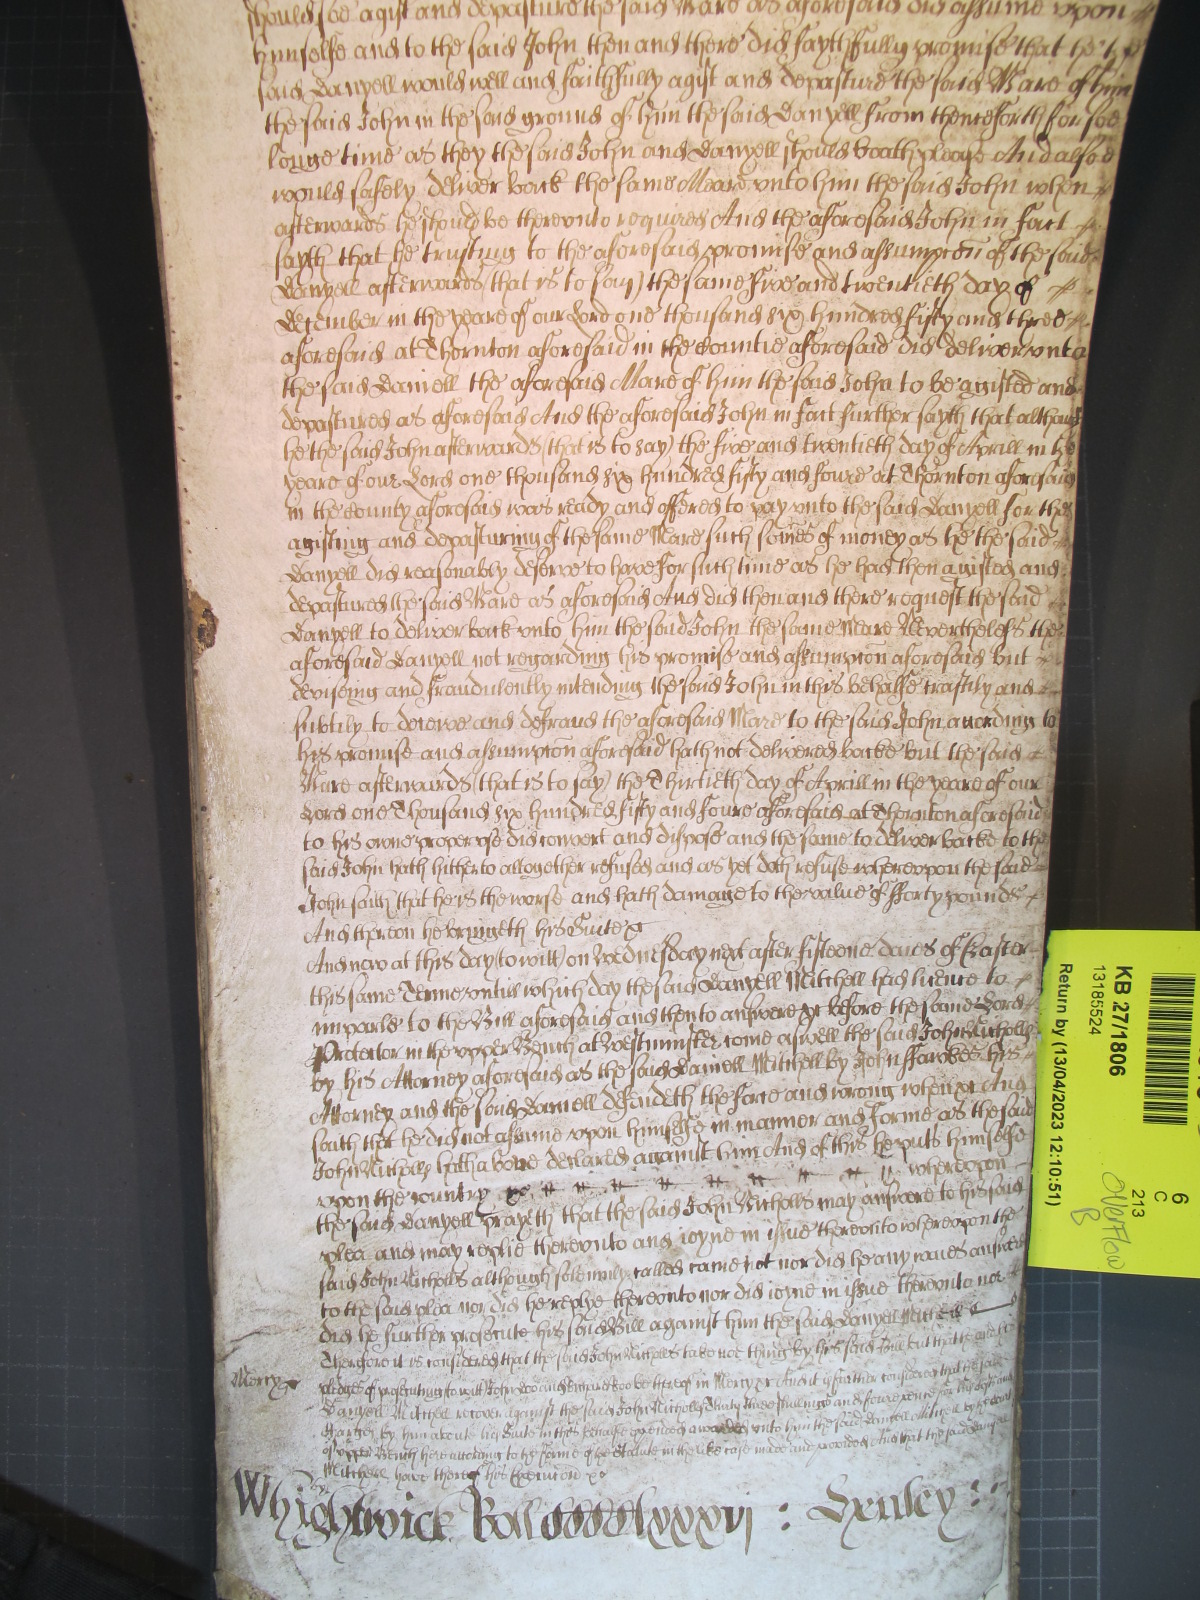 should soe agist and depasture the said Mare as aforesaid did assume upon
himselfe and to the said John then and there did faythfully promise that he the
said Danyell would well and faithfully agist and depasture the said Mare of him
the said John in the said ground of him the said Danyell from thenceforth for soe
longe time as they the said John and Danyell should boath please And alsoe
would safely deliver back the same Mare unto him the said John when
afterwards he should be thereunto required And the aforesaid John in fact
sayth that he trusting to the aforesaid promise and assumpcon of the said
Danyell afterwards (that is to say) the same five and twentieth day of
December in the yeare of our Lord one thousand six hundred fifty and three
aforesaid at Thornton aforesaid in the Countie aforesaid did deliver unto
the said Daniell the aforesaid Mare of him the said John to be agisted and
depastured as aforesaid And the aforesaid John in fact further sayth that although
he the said John afterwards (that is to say) the five and twentieth day of Aprill in the
yeare of our Lord one thousand six hundred fifty and foure at Thornton aforesaid
in the County aforesaid was ready and offered to pay unto the said Danyell for the
agisting and depasturing of the same Mare such somes of money as he the said
Danyell did reasonably deserve to have for such time as he had then agisted and
depastured the said Mare as aforesaid And did then and there request the said
Danyell to deliver back unto him the said John the same Mare Nevertheless the
aforesaid Danyell not regarding his promise and assumpcon aforesaid but
deviseing and fraudulently intending the said John in this behalfe craftily and
subtily to deceive and defraud the aforesaid Mare to the said John according to
his promise and assumpcon aforesaid hath not delivered backe but the said
Mare afterwards (that is to say) the Thirtieth day of Aprill in the yeare of our
Lord one Thousand six hundred fifty and foure aforesaid at Thornton aforesaid
to his owne proper use did convert and dispose and the same to deliver backe to the
said John hath hitherto altogether refused and as yet doth refuse whereupon the said
John saith that he is the worse and hath damage to the value of fforty pounds
And thereon he bringeth his Suite &c
And now at this day (to witt) on Wednesday next after fifteene daies of Easter
this same Terme untill which day the said Danyell Mitchell had licence to
imparle to the Bill aforesaid and then to answere &c before the same Lord
Protector in the upper Bench at Westminster come aswell the said John Nicholls
by his Attorney aforesaid as the said Daniell Mitchell by John ffawkes his
Attorney and the said Daniell defendeth the force and wrong when &c And
saith that he did not assume upon himselfe in manner and forme as the said
John Nicholls hath above declared against him And of this he puts himselfe
upon the country &c whereupon
the said Danyell prayeth that the said John Nicholls may answere to his said
plea and may replie thereunto and joyne in issue thereunto whereupon the
said John Nicholls although solemnly called came not nor did he any waies answere
to the said plea nor did he replye thereunto nor did joyne in issue thereunto nor
did he further prosecute his said Bill against him the said Danyell Mitchell
Therefore it is considered that the said John Nicholls take nothing by his said Bill but that he and his
Mercy pledges of prosecuting to witt John Doe and Richard Roe be thereof in Mercy &c And it is further considered that the said
Danyell Mitchell recover against the said John Nicholls thirty three shillings and foure pence for his
charges by him about his Suite in this behalfe awarded unto him the said Daniell Mitchell by the Court
of upper Bench here according to the forme of the Statute in the like case made and provided And that the said Danyell
Mitchell have thereof his Execucion &c
Whightwick Roll CCCCClxxxvj : Exnley :
KB 27/1806
13185524
Return by (13/04/2023 12:10:51)
6
C
213
Overflow
B